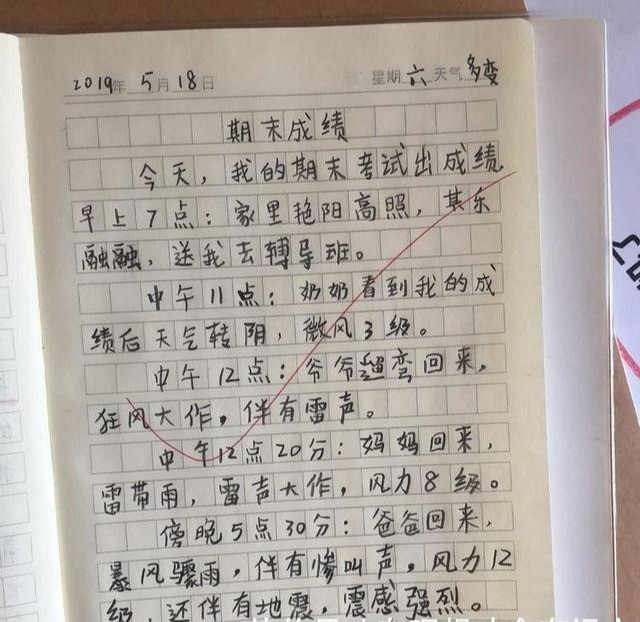 2019年 5月 18日 星期六 天气多变
期末成绩
今天，我的期末考试出成绩
早上7点：家里艳阳高照，其乐
融融，送我去辅导班。
中午11点：奶奶看到我的成
绩后天气转阴，微风3级。
中午12点：爷爷遛弯回来，
狂风大作，伴有雷声。
中午12点20分：妈妈回来，
雷带雨，雷声大作，风力8级。
傍晚5点30分：爸爸回来，
暴风骤雨，伴有惨叫声，风力12
级，还伴有地震，震感强烈。